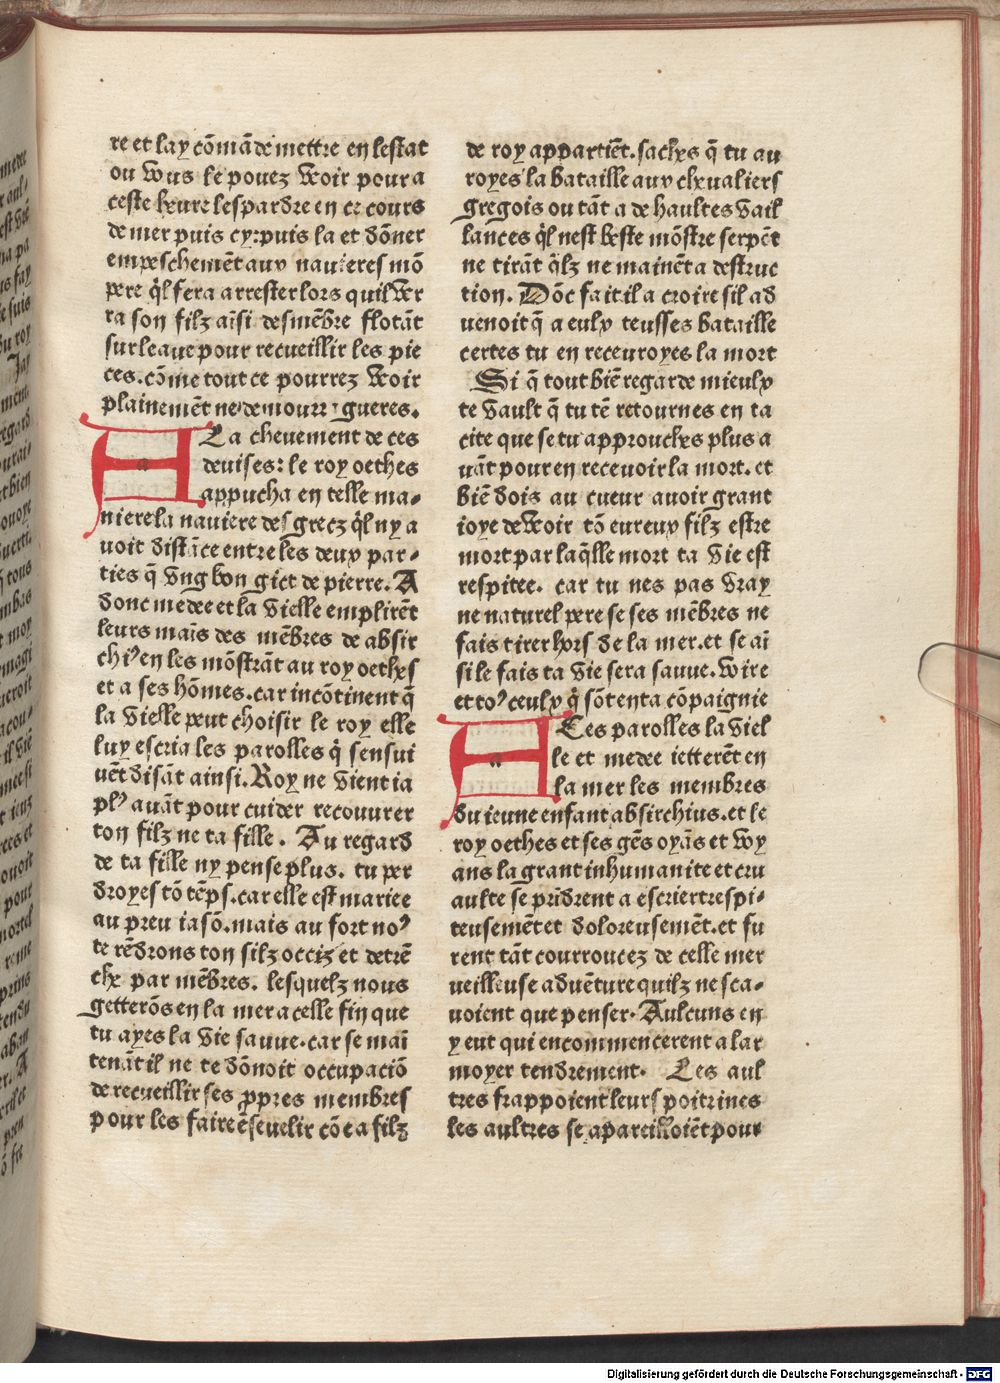 re et lay cōmāde mettre en lestat
ou vous le pouez veoir pour a
ceste heure lespardre en ce cours
de mer puis cy: puis la et dōner
empeschemēt aux nauieres mō
pere q̄l fera arrester lors quil ver
ra son filz aīsi desmēbre flotāt
sur leaue pour recueillir les pie
ces. cōme tout ce pourrez veoir
plainemēt ne demourra gueres.
A La cheuement de ces
deuises: le roy oethes
appucha en telle ma-
niere la nauiere des grecz q̄l ny a
uoit distāce entre les deux par-
ties q̄ vng bon gict de pierre. A
donc medee et la vielle emplirēt
leurs maīs des mēbres de absir
chiꝰ en les mōstrāt au roy oethes
et a ses hōmes. car incōtinent q̄
la vielle peut choisir le roy elle
luy escria les parolles q̄ sensui
uēt disāt ainsi. Roy ne vient ia
plꝰ auāt pour cuider recouurer
ton filz ne ta fille. Au regard
de ta fille ny pense plus. tu per
droyes tō tēps. car elle est mariee
au preu iasō. mais au fort noꝰ
te rēdrons ton filz occiz et detrē
che par mēbres. lesquelz nous
getterōs en la mer a celle fin que
tu ayes la vie sauue. car se mai
tenāt il ne te dōnoit occupaciō
de recueillir ses ꝓpres membres
pour les faire ēseuelir cōe a filz
de roy appartiēt. saches q̄ tu au
royes la bataille aux cheualiers
gregois ou tāt a de haultes vail
lances q̄l nest beste mōstre serpēt
ne tirāt q̄lz ne mainēt a destruc
tion. Dōc fait il a croire sil ad
uenoit q̄ a eulx teusses bataille
certes tu en receuroyes la mort
Si q̄ tout biē regarde mieulx
te vault q̄ tu tē retournes en ta
cite que se tu approuches plus a
uāt pour en receuoir la mort. et
biē dois au cueur auoir grant
ioye de veoir tō eureux filz estre
mort par laq̄lle mort ta vie est
respitee. car tu nes pas vray
ne naturel pere se ses mēbres ne
fais tirer hors de la mer. et se ai
si le fais ta vie sera sauue. voire
et toꝰ ceulx q̄ sōt en ta cōpaignie
A Ces parolles la viel
le et medee ietterēt en
la mer les membres
du ieune enfant absirchius. et le
roy oethes et ses gēs oyās et voy
ans la grant inhumanite et cru
aulte se prīdrent a escrier trespi-
teusemēt et doloreusemēt. et fu
rent tāt courroucez de celle mer
ueilleuse aduēture quilz ne sca-
uoient que penser. Aulcuns en
y eut qui encommencerent a lar
moyer tendrement. Les aul
tres frappoient leurs poitrines
les aultres se apareilloiēt pour
Digitalisierung gefördert durch die Deutsche Forschungsgemeinschaft - DFG